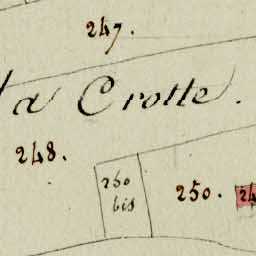 247.
la Crotte.
248.
250 bis
250.
24